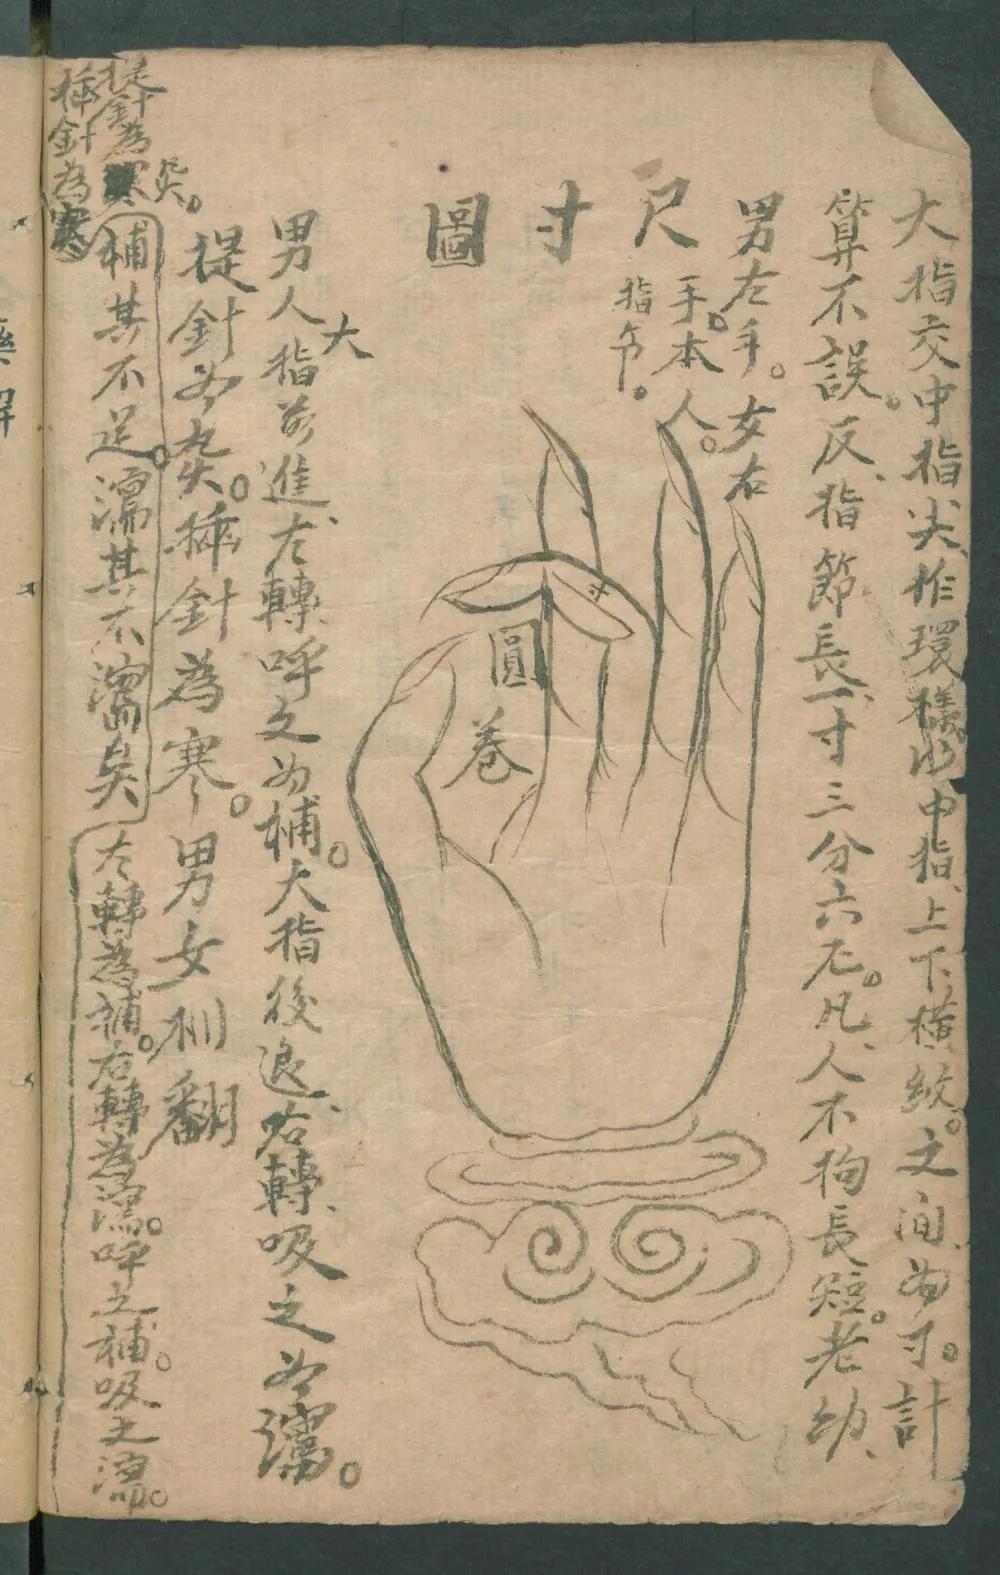 大指交中指尖作環樣。以中指上下橫紋。之间为寸。計
算不誤。反指節長一寸三分六厘。凡人不拘長短。老幼
男左手。女右
手。本人。
指
尺寸圖
寸
圓
卷
男人大指前進左轉呼之为補。大指後退右轉吸之为瀉。
提針为熱。插針為寒。男女相翻
補其不足。瀉其不
矣
左轉為補。右轉為瀉。呼之補。吸之瀉。
提針為
針為寒